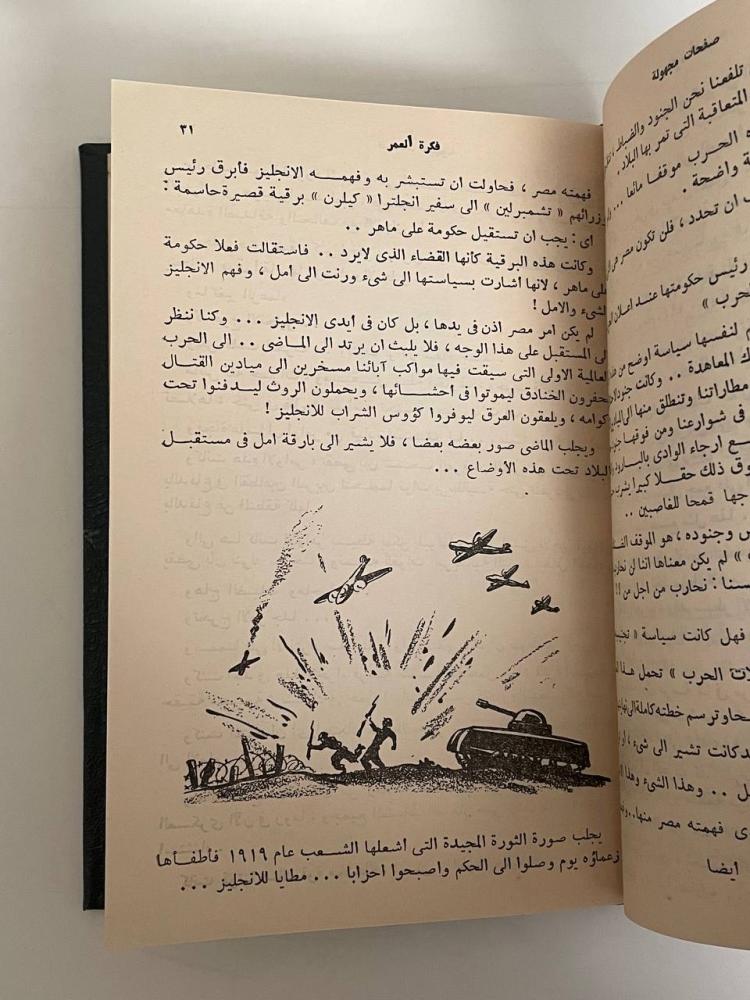 صفحات مجهولة
تلفعنا نحن الجنود والضباط ،
المتعاقبة التى تمر بها البلاد .
الحرب موقفا مائعا ...
واضحة .
ان تحدد ، فلن تكون مصر
رئيس حكومتها عند اعلان
الحرب »
لنفسها سياسة اوضح من
المعاهدة .. وكانت جنود
مطاراتنا وتنطلق منها الى
فى شوارعنا ومن فوقها
ارجاء الوادى
ذلك حقلا كبيرا يشرب
قمحا للغاصبين ..
وجنوده ، هو الموقف
» لم يكن معناها اننا لن نحارب
: نحارب من اجل من !!
فهل كانت سياسة «
الحرب » تحمل هذا
ترسم خطته كاملة
كانت تشير الى شىء ،
.. وهذا الشىء وهذا
فهمته مصر منها..
ايضا
فكرة العمر ٣١
فهمته مصر ، فحاولت ان تستبشر به وفهمـــه الانجليز فأبرق رئيس
وزرائهم « تشمبرلين » الى سفير انجلترا « كيلرن » برقية قصيرة حاسمة :
اى : يجب ان تستقيل حكومة على ماهر ..
وكانت هذه البرقية كأنها القضاء الذى لايرد .. فاستقالت فعلا حكومة
على ماهر ، لانها أشارت بسياستها الى شىء ورنت الى أمل ، وفهم الانجليز
الشىء والامل !
لم يكن امر مصر اذن فى يدها ، بل كان فى أيدى الانجليز ... وكنا ننظر
الى المستقبل على هذا الوجه ، فلا يلبث ان يرتد الى الماضى .. الى الحرب
العالمية الاولى التى سيقت فيها مواكب آبائنا مسخرين الى ميادين القتال
يحفرون الخنادق ليموتوا فى أحشائها ، ويحملون الروث ليـدفنوا تحت
اكوامه ، ويلعقون العرق ليوفروا كؤوس الشراب للانجليز !
ويجلب الماضى صور بعضه بعضا ، فلا يشير الى بارقة امل فى مستقبل
البلاد تحت هذه الأوضاع ...
يجلب صورة الثورة المجيدة التى اشعلها الشـعب عام ١٩١٩ فأطفأها
زعماؤه يوم وصلوا الى الحكم واصبحوا احزابا ... مطايا للانجليز ...